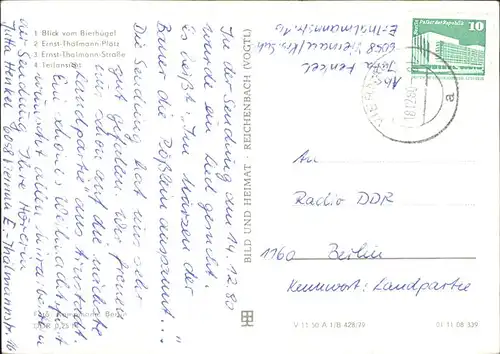 1 Blick vom Bierhügel
2 Ernst-Thälmann-Platz
3 Ernst-Thälmann-Straße
4 Teilansicht
In der Sendung am 14.12.80
wurde ein Lied gespielt.
Es heißt: "Im Märzen der
Bauer die Rößlein anspannt..."
Die Sendung hat uns sehr
gut gefallen. Wir freuen
uns schon auf die nächste
"Landpartie" aus Arnstadt.
Ein schönes Weihnachtsfest
wünscht allen Mitarbeitern
der Sendung Ihre Hörerin
Jutta Henkel 6058 Viernau E.-Thälmannstr. 16
DDR 0,25 M
BILD UND HEIMAT · REICHENBACH (VOGTL)
Abs.
Jutta Henkel
6058 Viernau/Krs. Suhl
E.-Thälmannstr. 16
Palast der Republik
10
18.12.80
a
An
Radio DDR
1160 Berlin
Kennwort: Landpartie
V 11 50 A 1/B 428/79
01 11 08 339